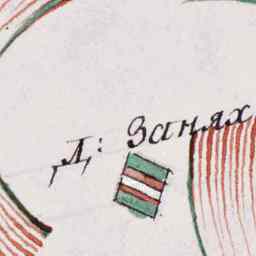 Д: Занях